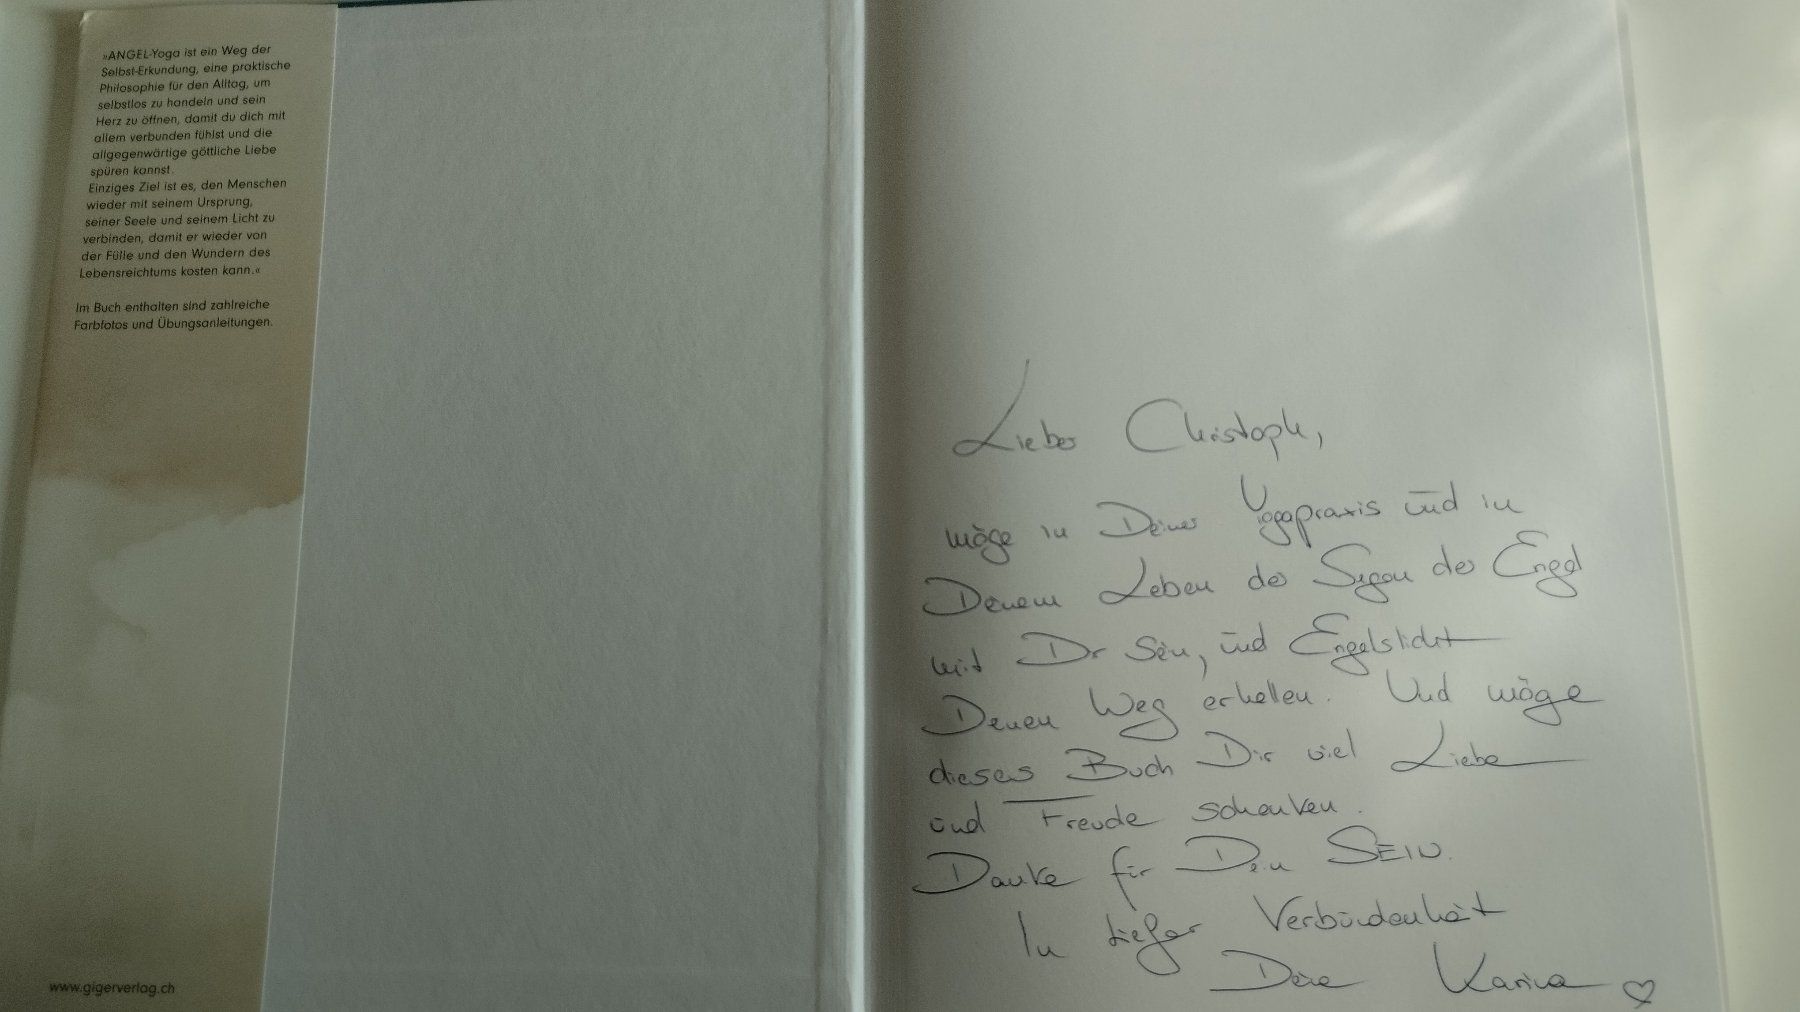 »ANGEL-Yoga ist ein Weg der
Selbst-Erkundung, eine praktische
Philosophie für den Alltag, um
selbstlos zu handeln und sein
Herz zu öffnen, damit du dich mit
allem verbunden fühlst und die
allgegenwärtige göttliche Liebe
spüren kannst.
Einziges Ziel ist es, den Menschen
wieder mit seinem Ursprung,
seiner Seele und seinem Licht zu
verbinden, damit er wieder von
der Fülle und den Wundern des
Lebensreichtums kosten kann.«
Im Buch enthalten sind zahlreiche
Farbfotos und Übungsanleitungen.
www.gigerverlag.ch
Lieber Christoph,
möge in Deiner Yogapraxis und in
Deinem Leben der Segen der Engel
mit Dir sein, und Engelslicht
Deinen Weg erhellen. Und möge
dieses Buch Dir viel Liebe
und Freude schenken.
Danke für Dein SEIN.
In tiefer Verbundenheit
Deine Karina